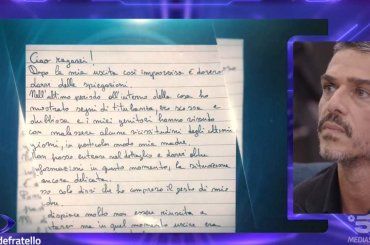 Ciao ragazzi!
Dopo la mia uscita così improvvisa è doveroso
darvi delle spiegazioni.
Nell'ultimo periodo all'interno della casa ho
mostrato segni di titubanza, ero scossa e
dubbiosa e i miei genitori hanno vissuto
con malessere alcune vicissitudini degli ultimi
giorni, in particolar modo mia madre.
Non posso entrare nel dettaglio e darvi altre
informazioni in questo momento, la situazione
è ancora delicata.
so solo dirvi che ho compreso il gesto di mia
dre.
dispiace molto non essere riuscita a
ma in quel momento uscire era
defratello
5
MEDIAS